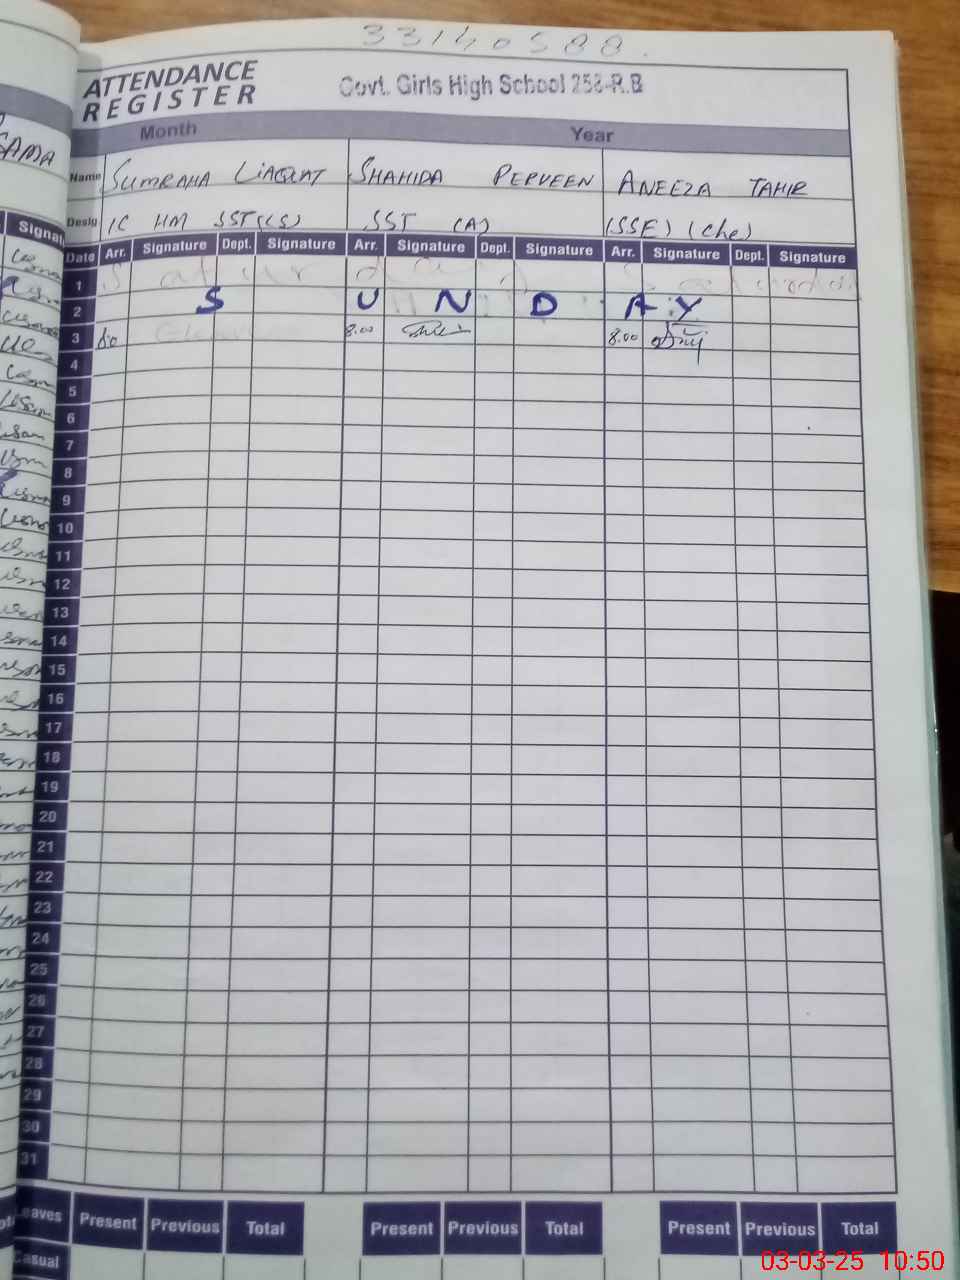 33140588.
ATTENDANCE
REGISTER
Govt. Girls High School 258-R.B
Month Year
SAMA
Name SUMRAHA LIAQUAT SHAHIDA PERVEEN ANEEZA TAHIR
Desig IC HM SST(LS) SST (A) (SSE) (Che)
Signat
Date Arr. Signature Dept. Signature Arr. Signature Dept. Signature Arr. Signature Dept. Signature
1 Saturday
2 S U N D A Y
3 8.00 8.00
4
5
6
7
8
9
10
11
12
13
14
15
16
17
18
19
20
21
22
23
24
25
26
27
28
29
30
31
Leaves Present Previous Total Present Previous Total Present Previous Total
Casual
03-03-25 10:50